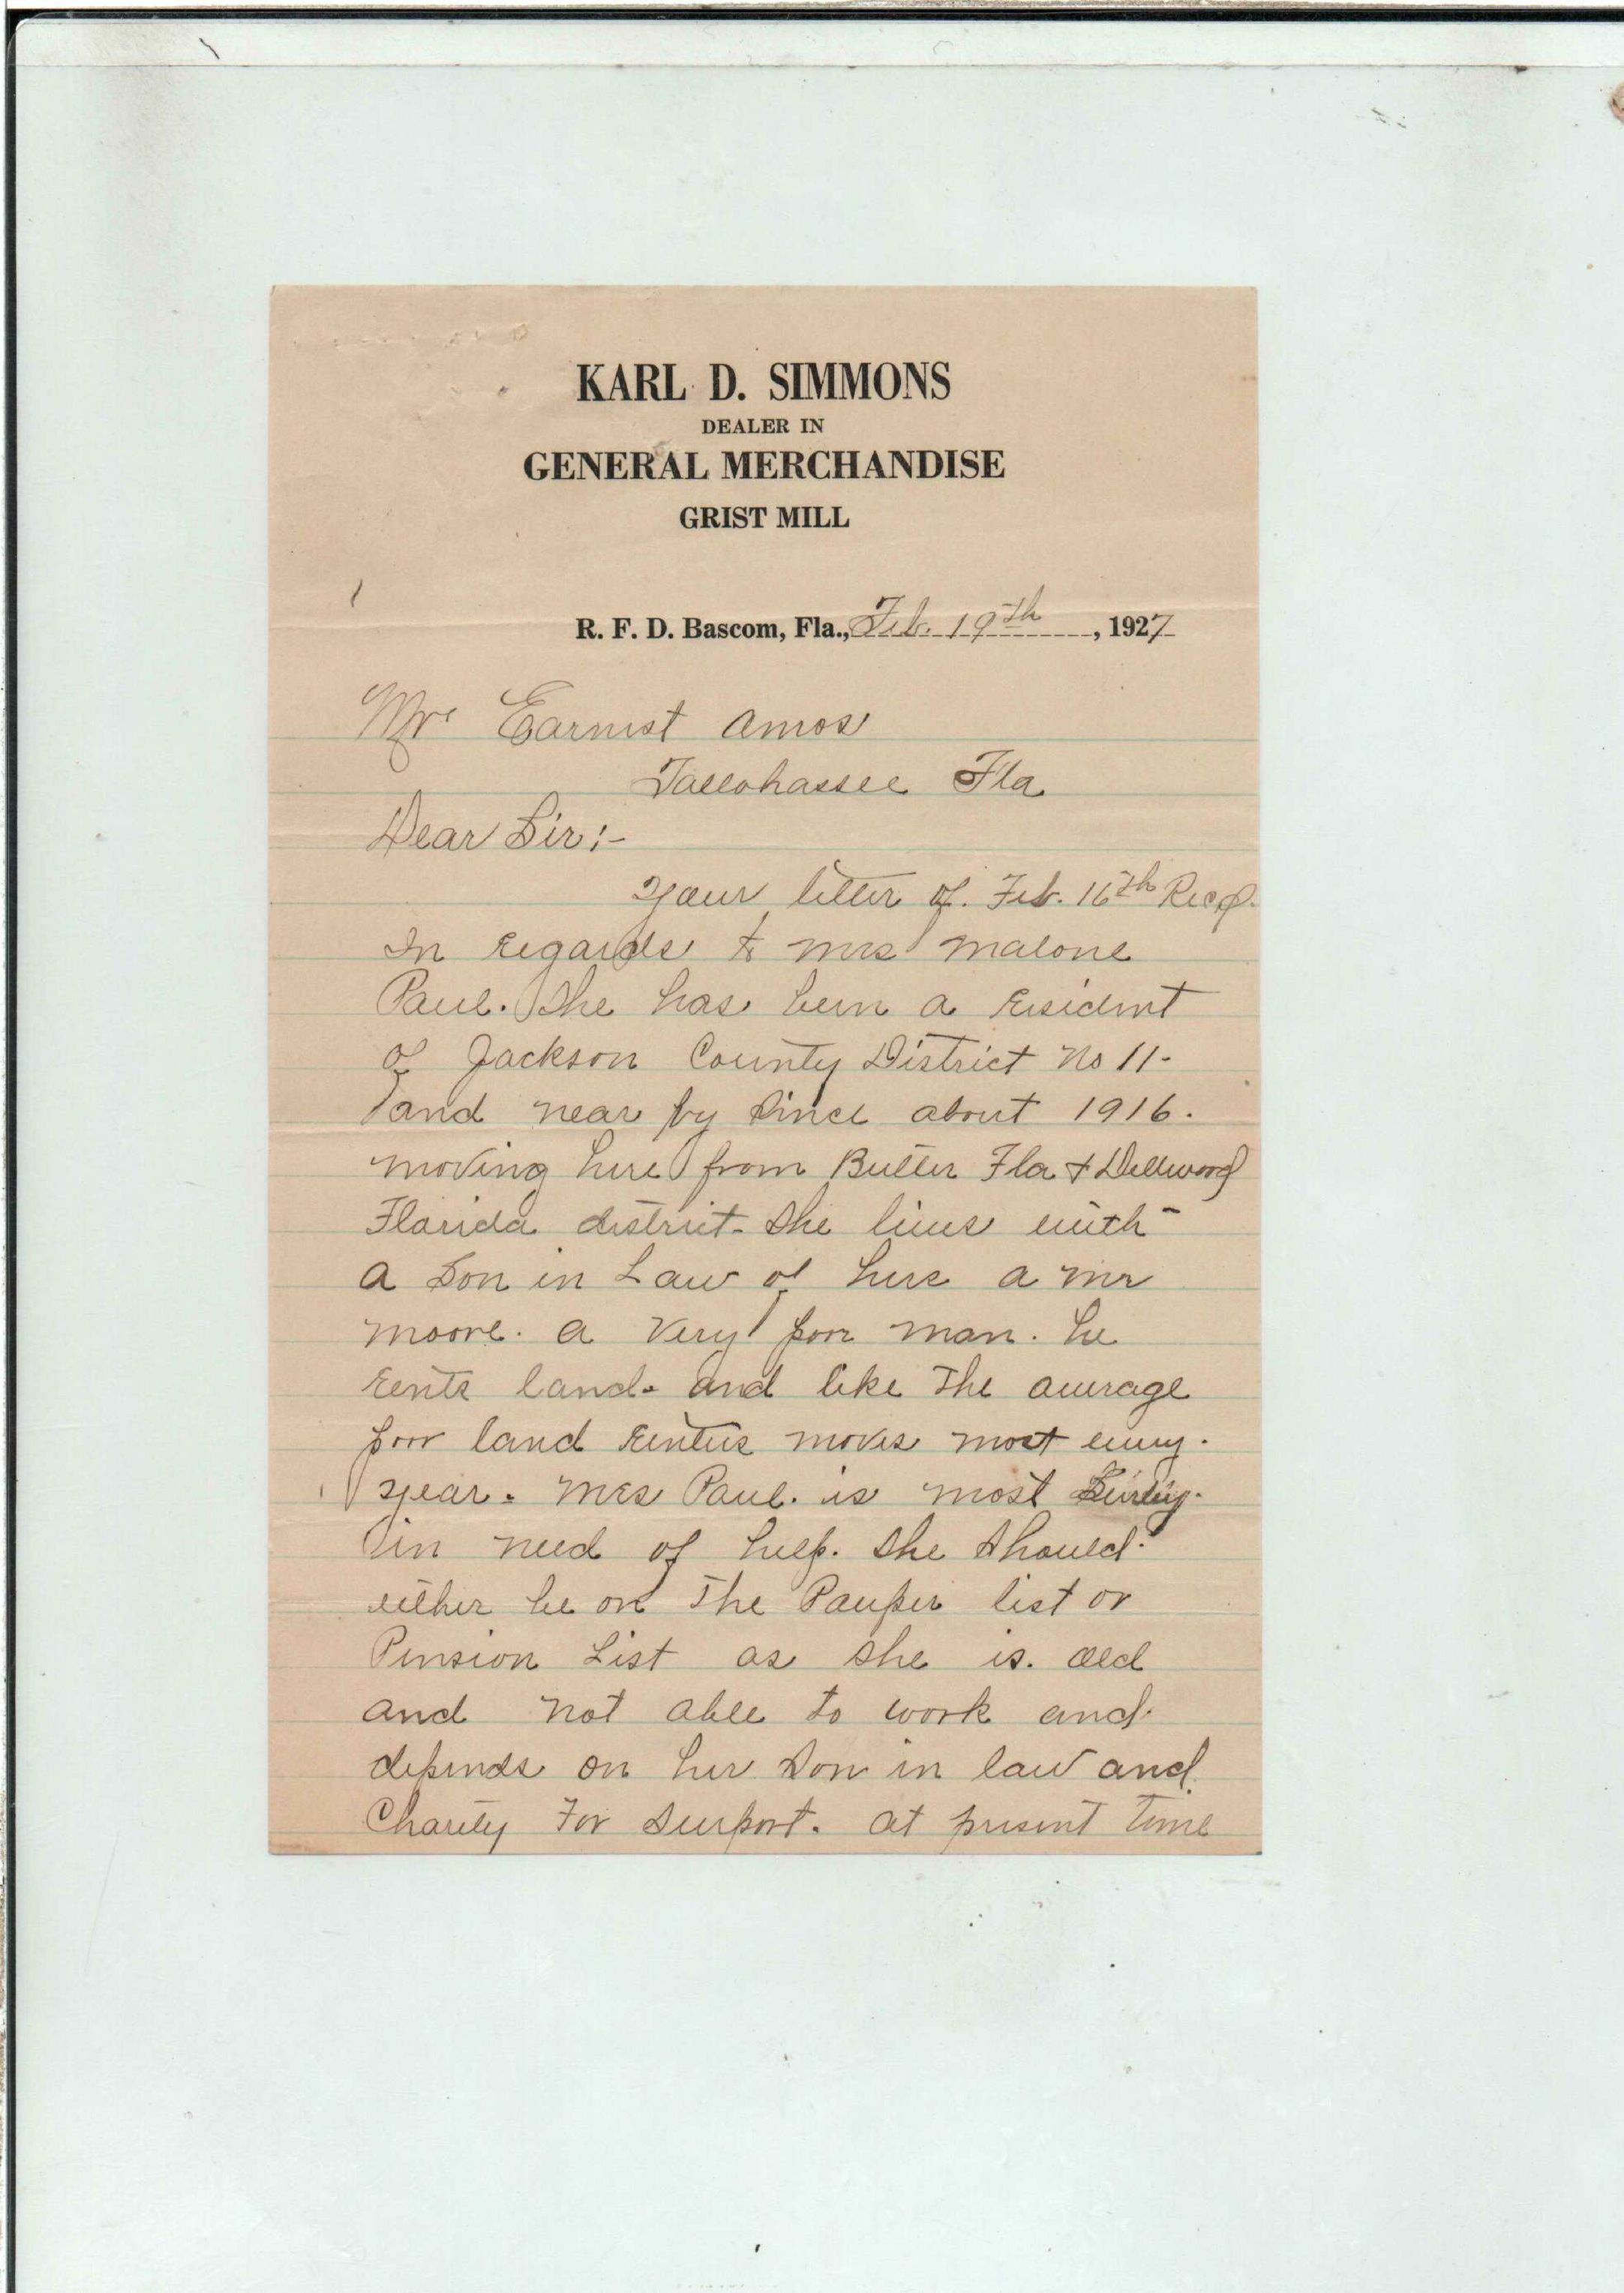 KARL D. SIMMONS
DEALER IN
GENERAL MERCHANDISE
GRIST MILL
R. F. D. Bascom, Fla., Feb. 19th, 1927
Mr Earnest Amos
Tallahassee Fla
Dear Sir:-
Your letter of. Feb. 16th Recd.
In regards to Mrs Malone
Paul. She has been a resident
of Jackson County District No 11-
and near by since about 1916.
moving here from Butler Fla & Dellwood
Florida district- She lives with-
a Son in Law of hers a Mr
Moore. a very poor man. he
rents land- and like The average
poor land renters moves most every-
year. Mrs Paul. is most
in need of help. She should-
either be on The Pauper list or
Pension List as she is. old
and not able to work and-
depends on her Son in law and
Charity For surport. at present time